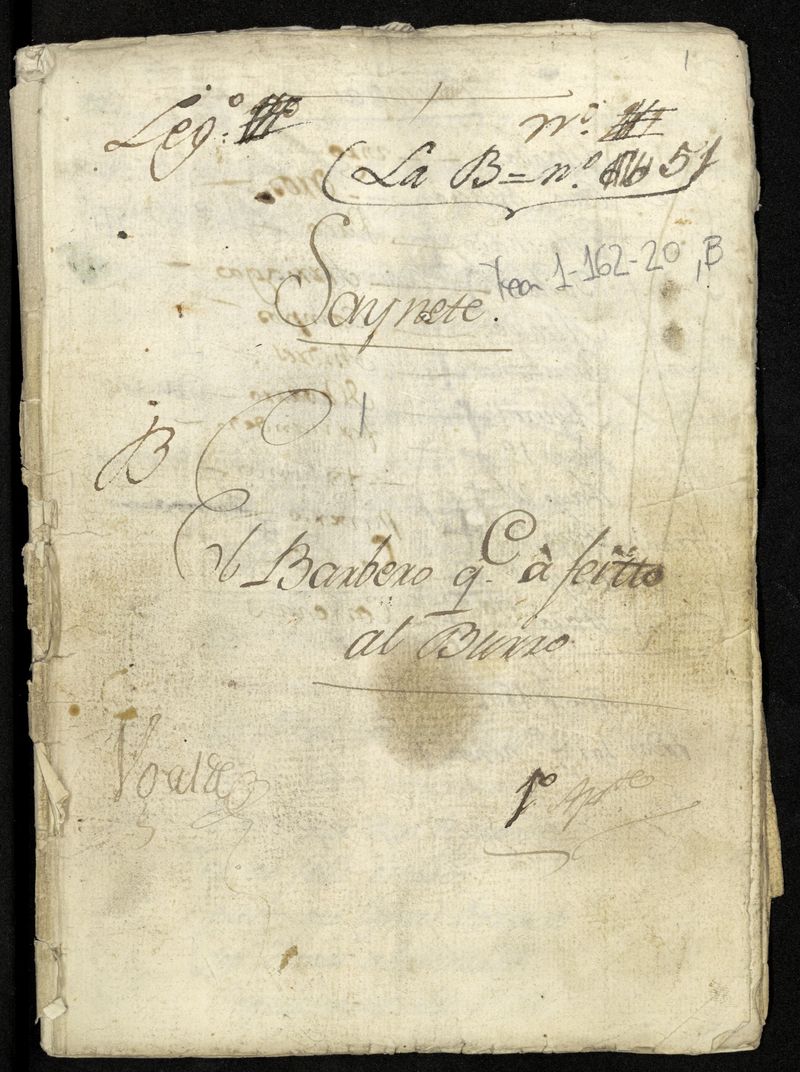 1
Leg.º nº
(La B = n.º 51
Saynete.
Tea 1-162-20, B
B
El Barbero q.e à feitto
al Burro
1º Ap.te